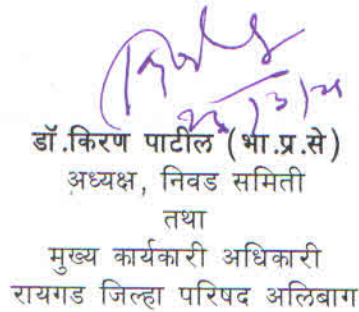 डॉ.किरण पाटील (भा.प्र.से)
अध्यक्ष, निवड समिती
तथा
मुख्य कार्यकारी अधिकारी
रायगड जिल्हा परिषद अलिबाग